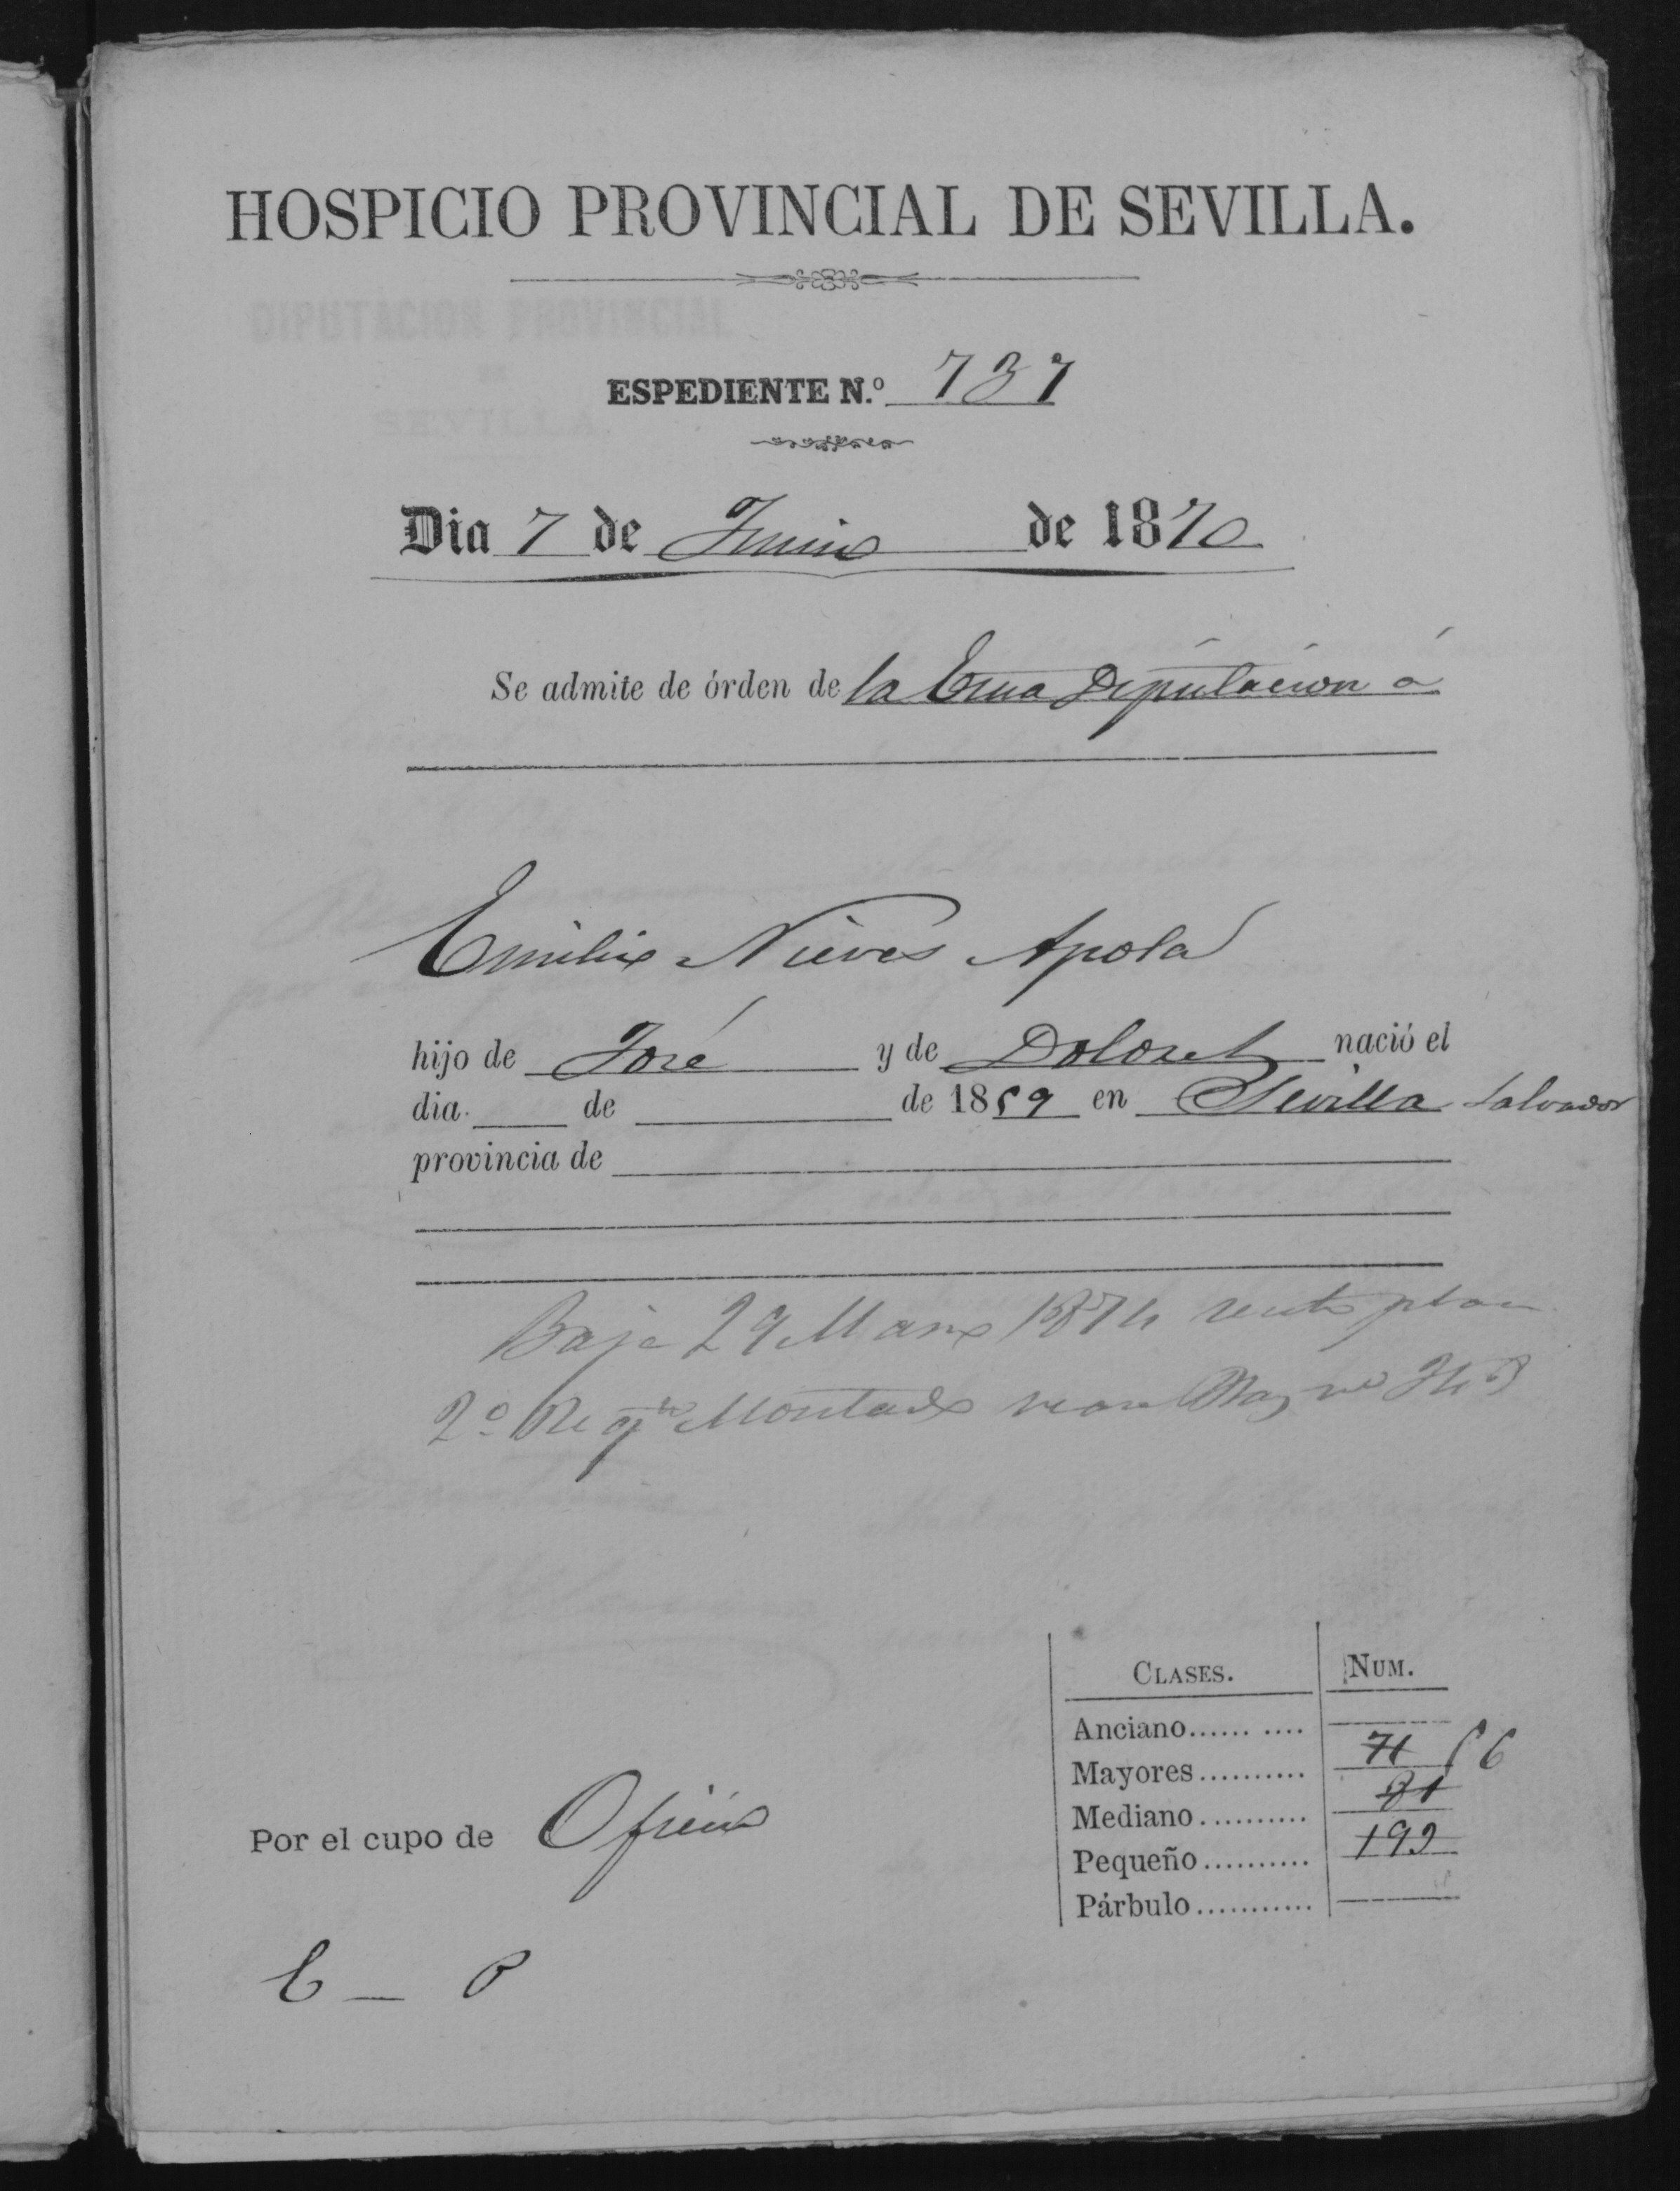 HOSPICIO PROVINCIAL DE SEVILLA.
DIPUTACION PROVINCIAL
DE
SEVILLA
ESPEDIENTE N.º 737
Dia 7 de Junio de 1870
Se admite de órden de la Ecma Diputacion á
Emilio Nieves Apola
hijo de José y de Dolores nació el
dia de de 1859 en Sevilla Salvador
provincia de
Baja 29 Marzo 1874 plaza
2º Regto Montado
CLASES. NUM.
Anciano
Mayores 71 56
Mediano 81
Pequeño 192
Párbulo
Por el cupo de Oficio
E — P